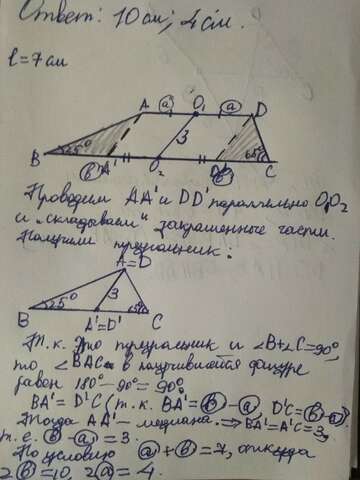 Ответ: 10 см; 4 см.
l = 7 см
A a O₁ a D
3
B 25° A' O₂ D' 65° C
b b
Проводим AA' и DD' параллельно O₁O₂
и „складываем" закрашенные части.
Получили треугольник:
A=D
3
B 25° 65° C
A'=D'
Т.к. это треугольник и ∠B+∠C=90°,
то ∠BAC в получившейся фигуре
равен 180°-90°=90°.
BA'=D'C (т.к. BA'=b-a, D'C=b-a).
Тогда AA'- медиана. ⇒ BA'=A'C=3,
т.е. b-a=3.
По условию a+b=7, откуда
2b=10, 2a=4.